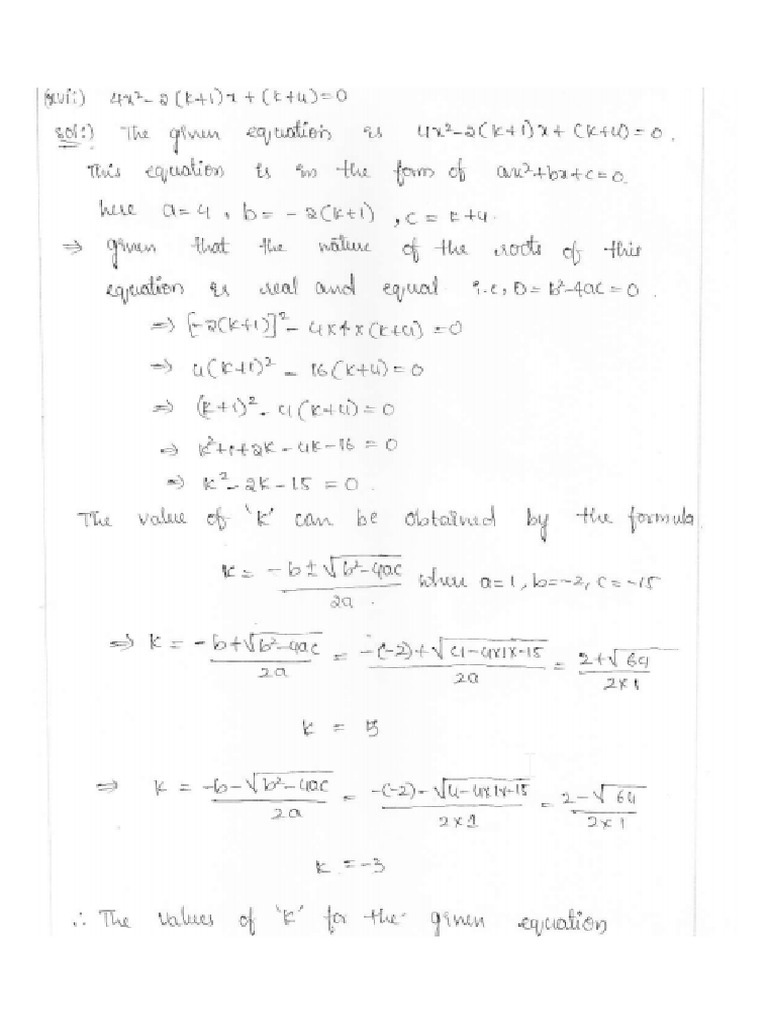 (xvi:) 4x²-2(k+1)x+(k+4)=0
sol:) The given equation is 4x²-2(k+1)x+(k+4)=0.
This equation is in the form of ax²+bx+c=0.
here a=4, b=-2(k+1), c=k+4.
⇒ given that the nature of the roots of this
equation is real and equal i.e, D=b²-4ac=0.
⇒ [-2(k+1)]²-4x4x(k+4)=0
⇒ 4(k+1)²-16(k+4)=0
⇒ (k+1)²-4(k+4)=0
⇒ k²+1+2k-4k-16=0
⇒ k²-2k-15=0.
The value of 'k' can be obtained by the formula
k = (-b±√(b²-4ac))/2a. where a=1, b=-2, c=-15
⇒ k = (-b+√(b²-4ac))/2a = (-(-2)+√(4-4x1x-15))/2a = (2+√64)/2x1
k = 5
⇒ k = (-b-√(b²-4ac))/2a = (-(-2)-√(4-4x1x-15))/2x1 = (2-√64)/2x1
k = -3
∴ The values of 'k' for the given equation